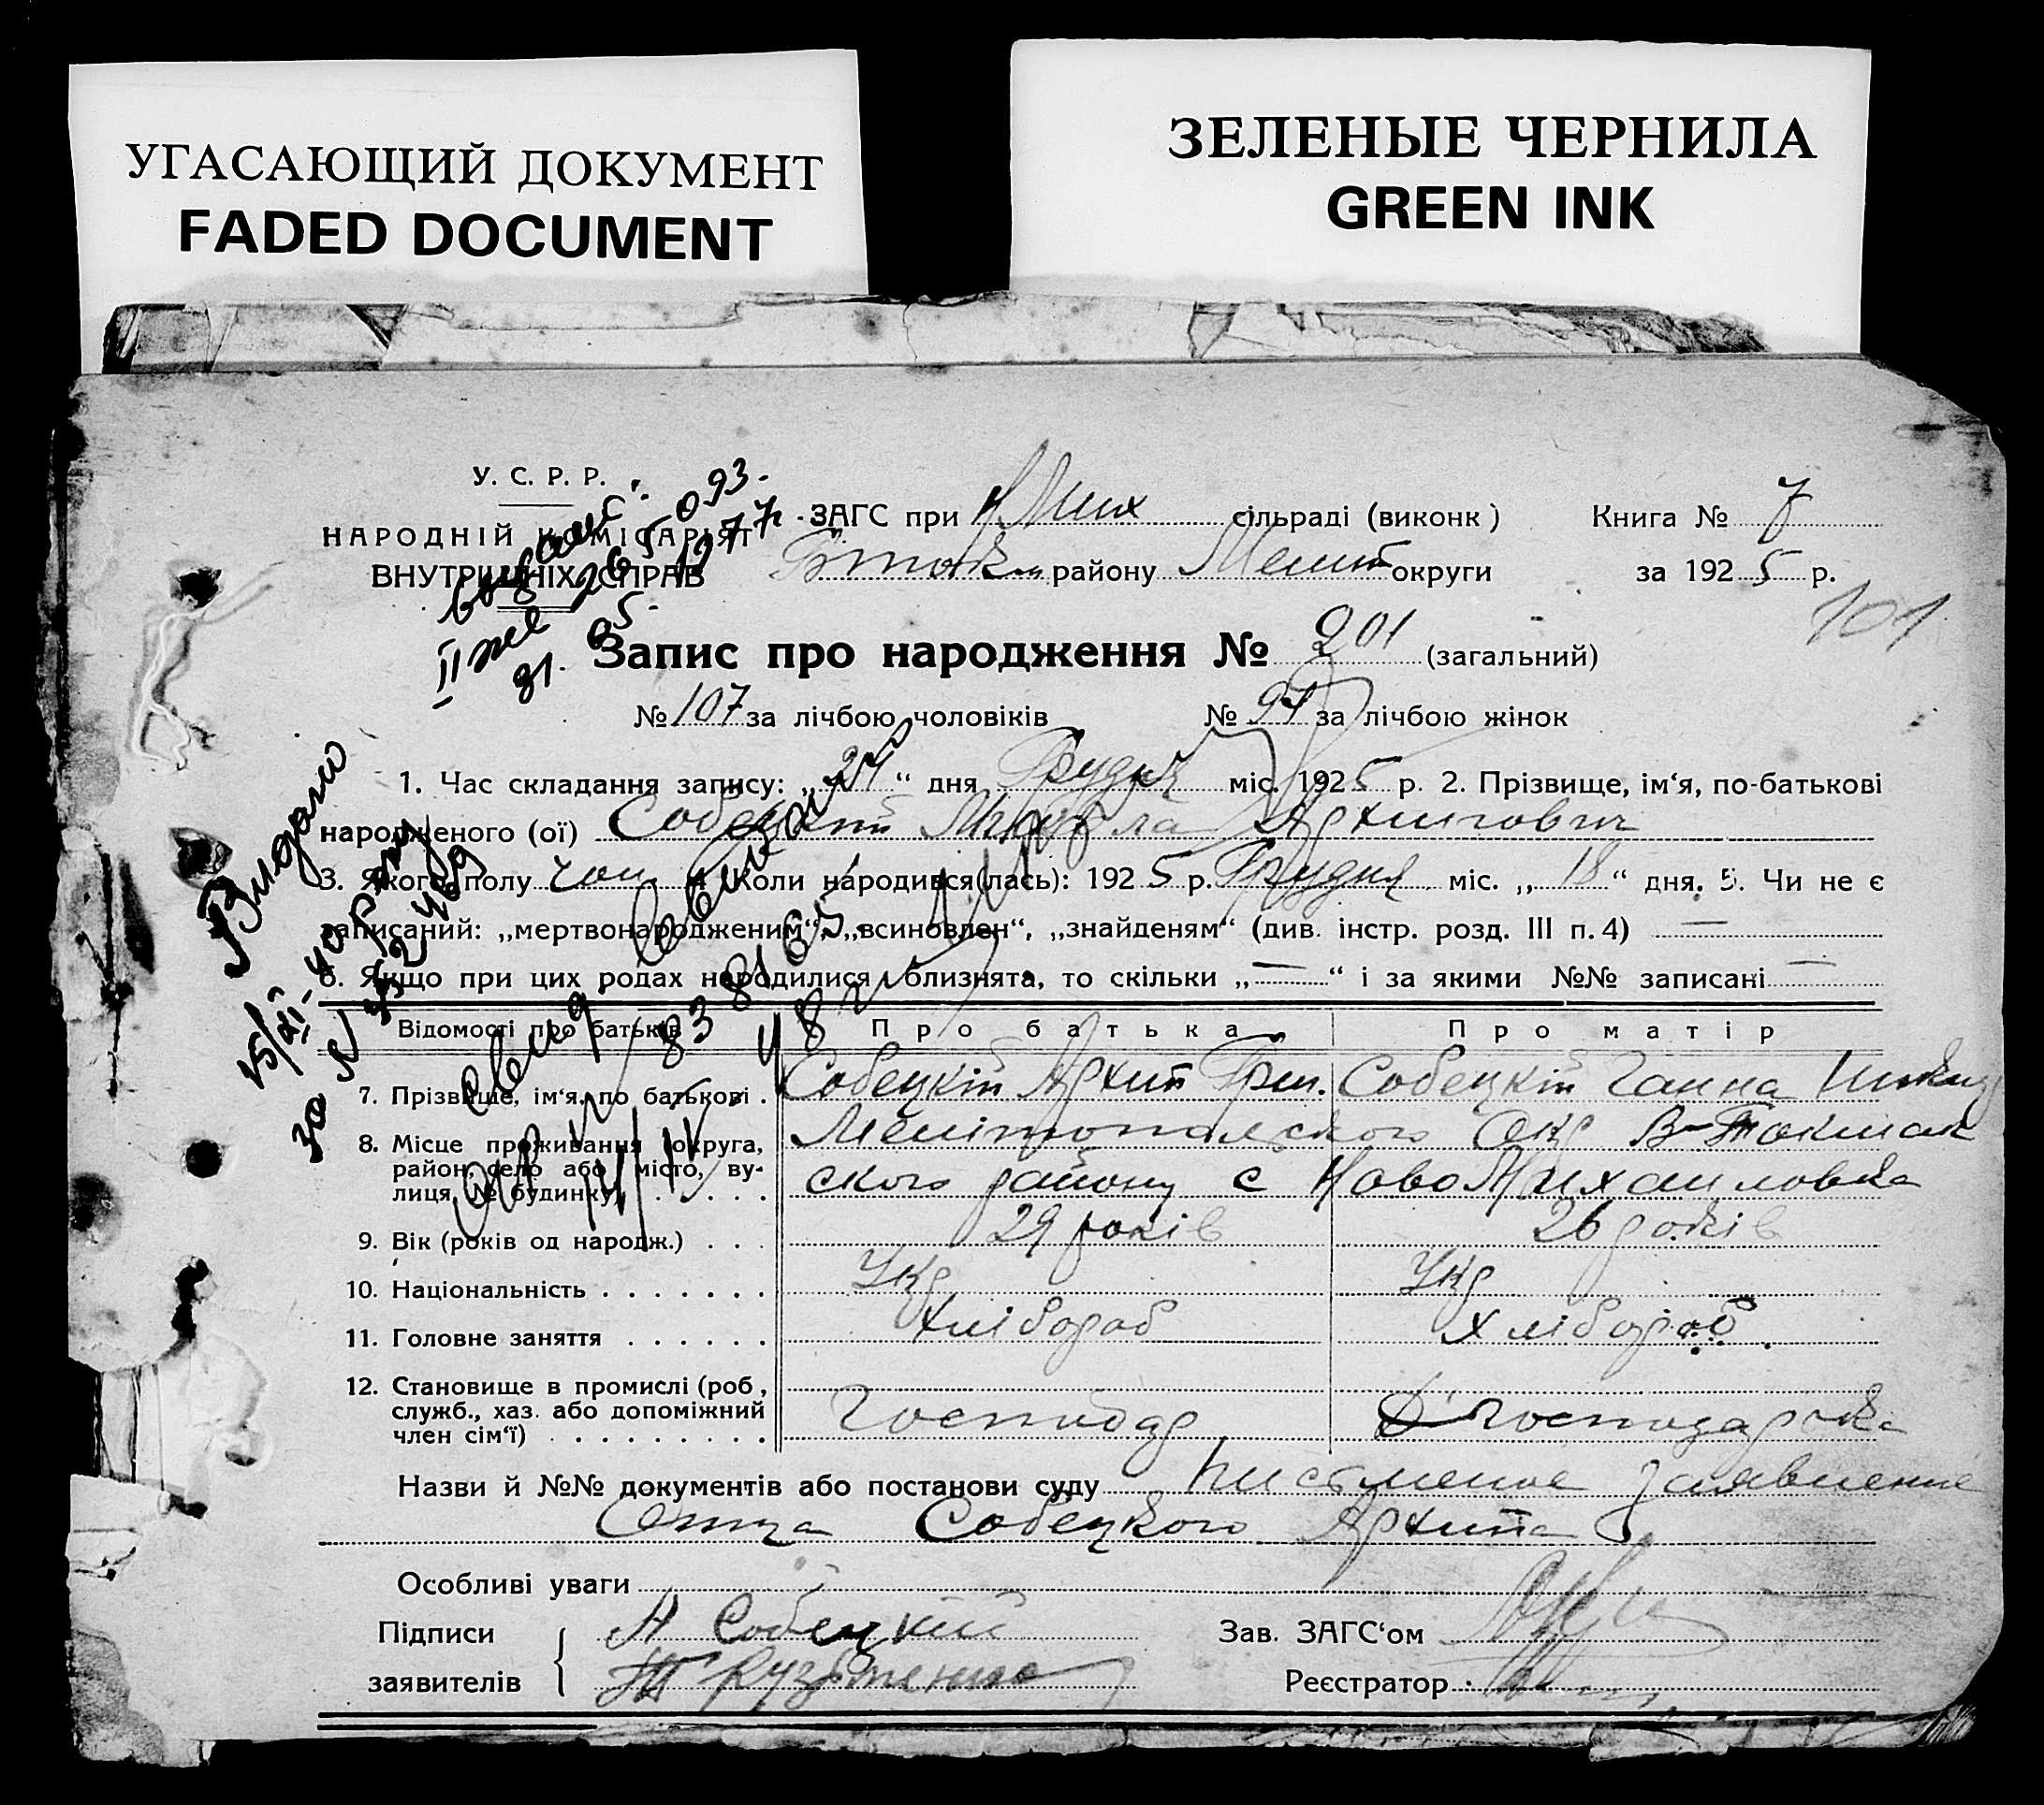 УГАСАЮЩИЙ ДОКУМЕНТ
FADED DOCUMENT
ЗЕЛЕНЫЕ ЧЕРНИЛА
GREEN INK
У. С. Р. Р.
НАРОДНІЙ КОМІСАРІЯТ
ВНУТРІШНІХ СПРАВ
ЗАГС при Н Мих сільраді (виконк) Книга № 7
району Меліт округи за 1925 р.
101
Запис про народження № 201 (загальний)
№ 107 за лічбою чоловіків № 94 за лічбою жінок
1. Час складання запису: „24“ дня Грудня міс. 1925 р. 2. Прізвище, ім‘я, по-батькові
народженого (ої) Собецкій Микола Архипович
3. Якого полу чол. 4. Коли народився(лась): 1925 р. Грудня міс. „18“ дня. 5. Чи не є
записаний: „мертвонародженим“, „всиновлен“, „знайденям“ (див. інстр. розд. III п. 4) —
6. Якщо при цих родах народилися близнята, то скільки „—“ і за якими №№ записані —
Видано
за №
Відомості про батьків Про батька Про матір
7. Прізвище, ім‘я, по батькові . Собецкій Архип Григ. Собецкій Ганна
8. Місце проживання (округа, район, село або місто, вулиця, № будинку) Мелітопольского Окр В-Токмак
ского району с Ново Михаиловка
9. Вік (років од народж.) . . . 29 років 26 років
10. Національність . . . . . . . Укр Укр
11. Головне заняття . . . . . . хлібороб хлібороб
12. Становище в промислі (роб., служб., хаз. або допоміжний член сім‘ї) . . . . . . . . Господар Господарка
Назви й №№ документів або постанови суду Письменое заявление
Отца Собецкого Архипа
Особливі уваги
Підписи А Собецкий Зав. ЗАГС‘ом
заявителів Реєстратор